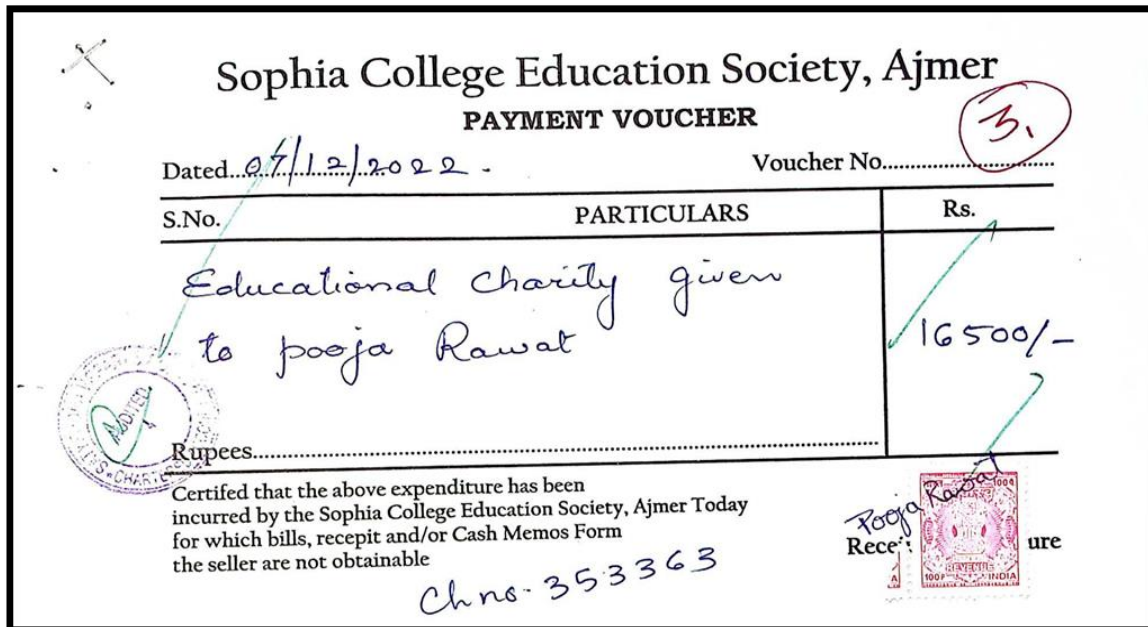 Sophia College Education Society, Ajmer
PAYMENT VOUCHER
3.
Dated...07/12/2022.
Voucher No.
S.No. PARTICULARS Rs.
Educational Charity given
to pooja Rawat
16500/-
AUDITED
Rupees
Certifed that the above expenditure has been
incurred by the Sophia College Education Society, Ajmer Today
for which bills, recepit and/or Cash Memos Form
the seller are not obtainable
Pooja Rawat
Rece ure
REVENUE
INDIA
Ch no. 353363